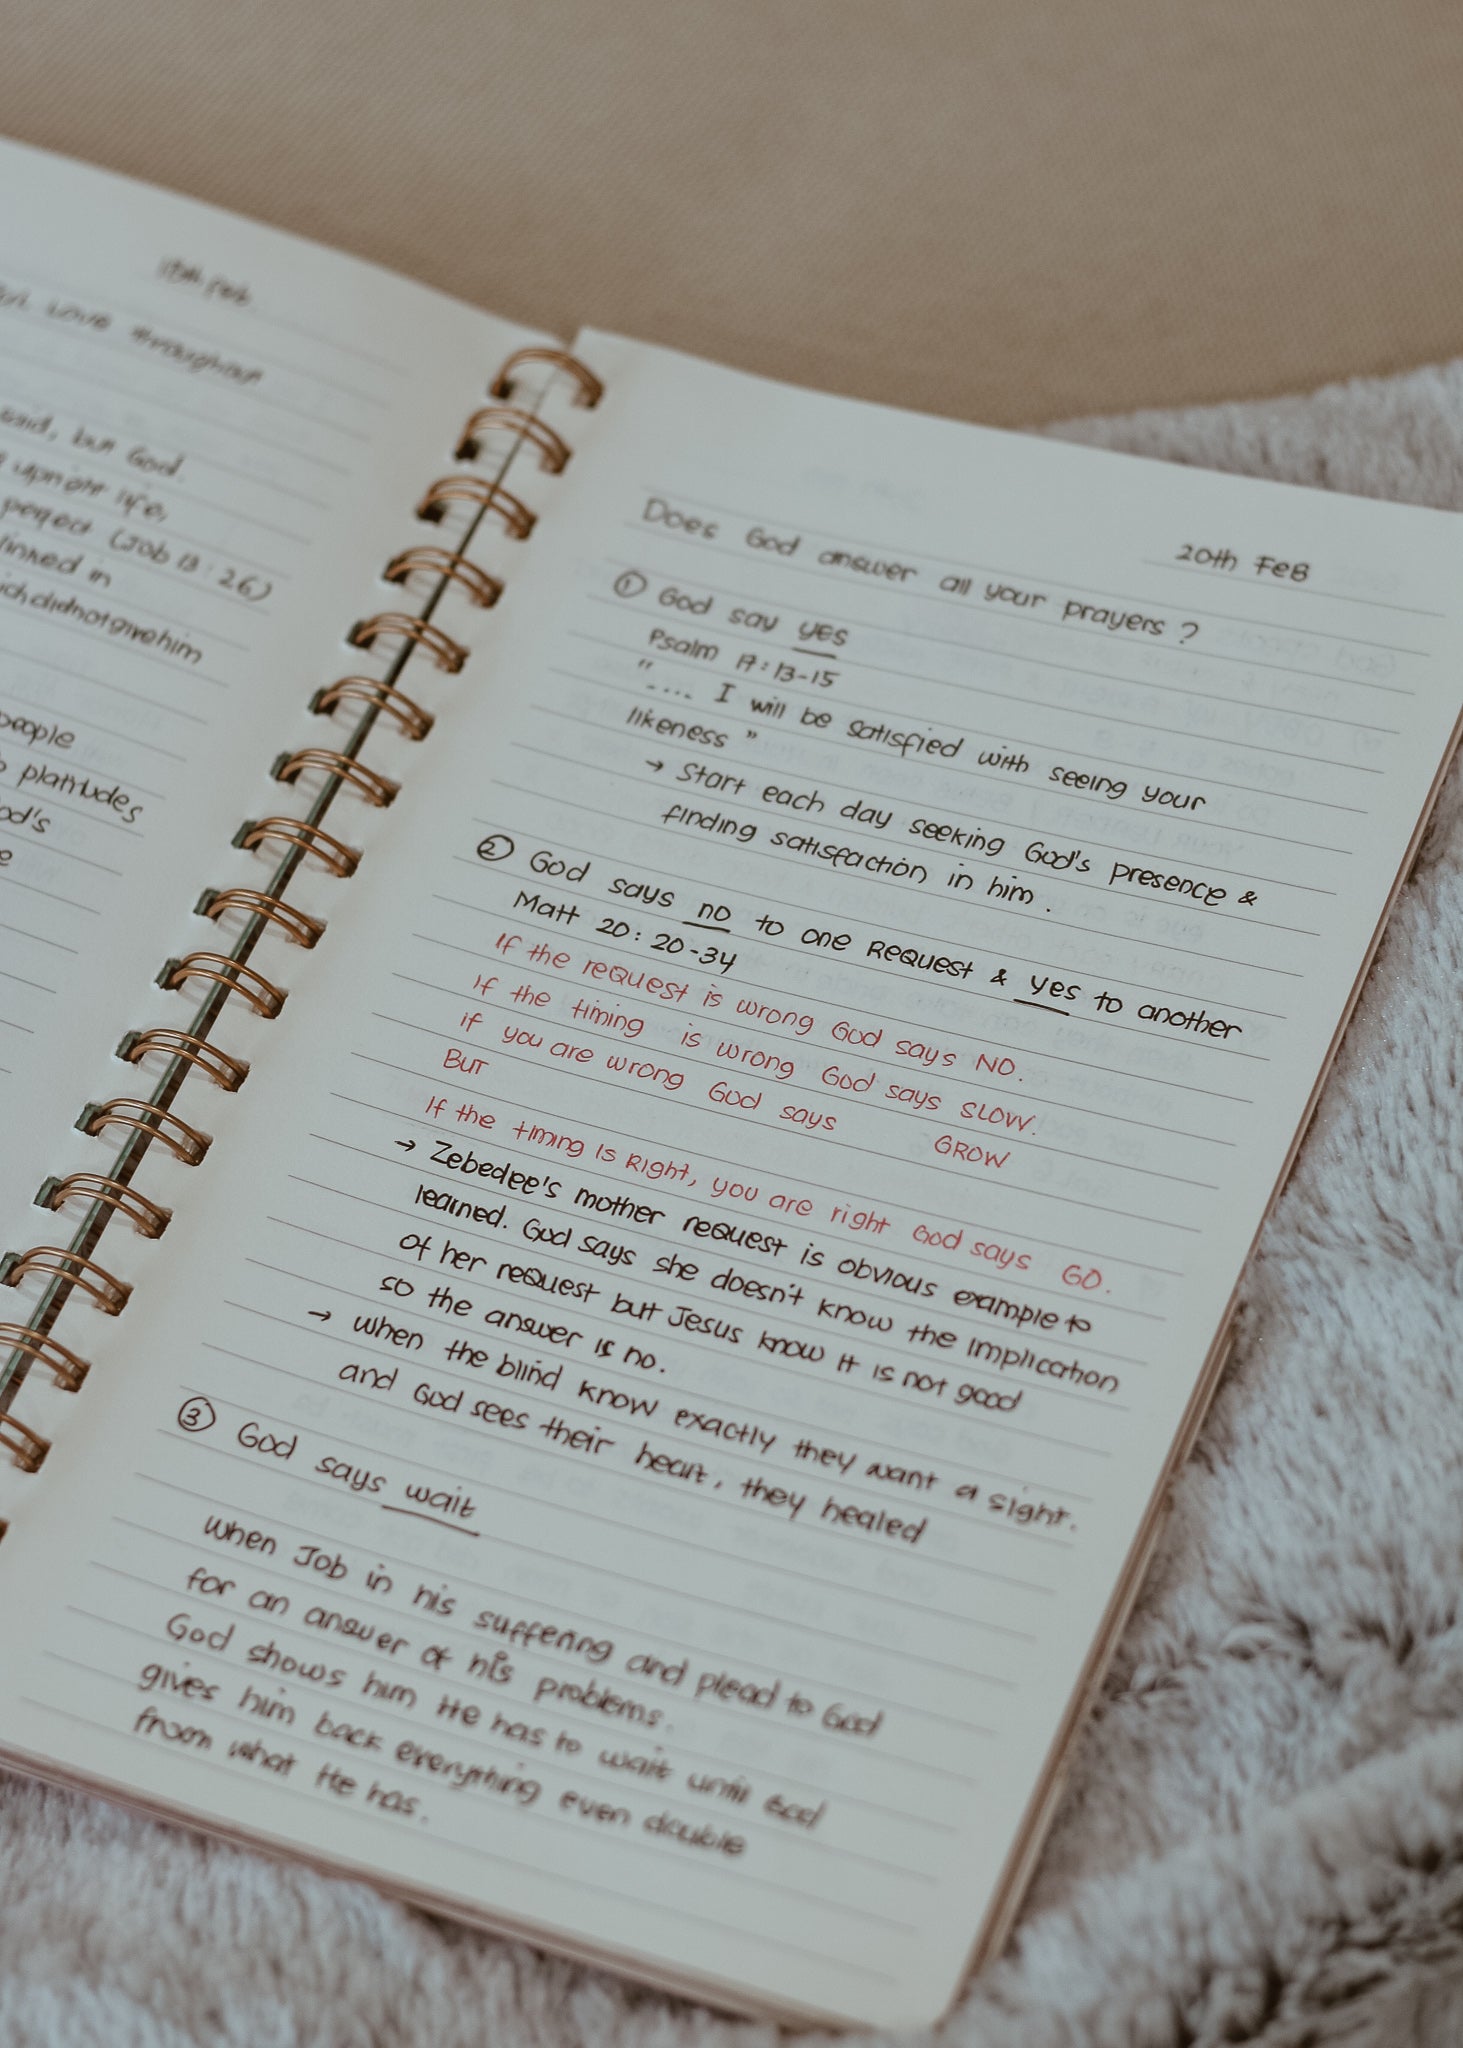 Feb.
Love throughout
said, but God.
life,
perfect (Job 13:26)
linked in
which did not give him
people
platitudes
God's
20th FEB
Does God answer all your prayers?
① God say yes
Psalm 17:13-15
".... I will be satisfied with seeing your
likeness"
→ Start each day seeking God's presence &
finding satisfaction in him.
② God says no to one REQUEST & yes to another
Matt 20:20-34
If the request is wrong God says NO.
If the timing is wrong God says SLOW.
if you are wrong God says GROW
But
If the timing is Right, you are right God says GO.
→ Zebedee's mother request is obvious example to
learned. God says she doesn't know the implication
of her request but Jesus know it is not good
so the answer is no.
→ when the blind know exactly they want a sight.
and God sees their heart, they healed
③ God says wait
when Job in his suffering and plead to God
for an answer of his problems.
God shows him He has to wait until God
gives him back everything even double
from what He has.